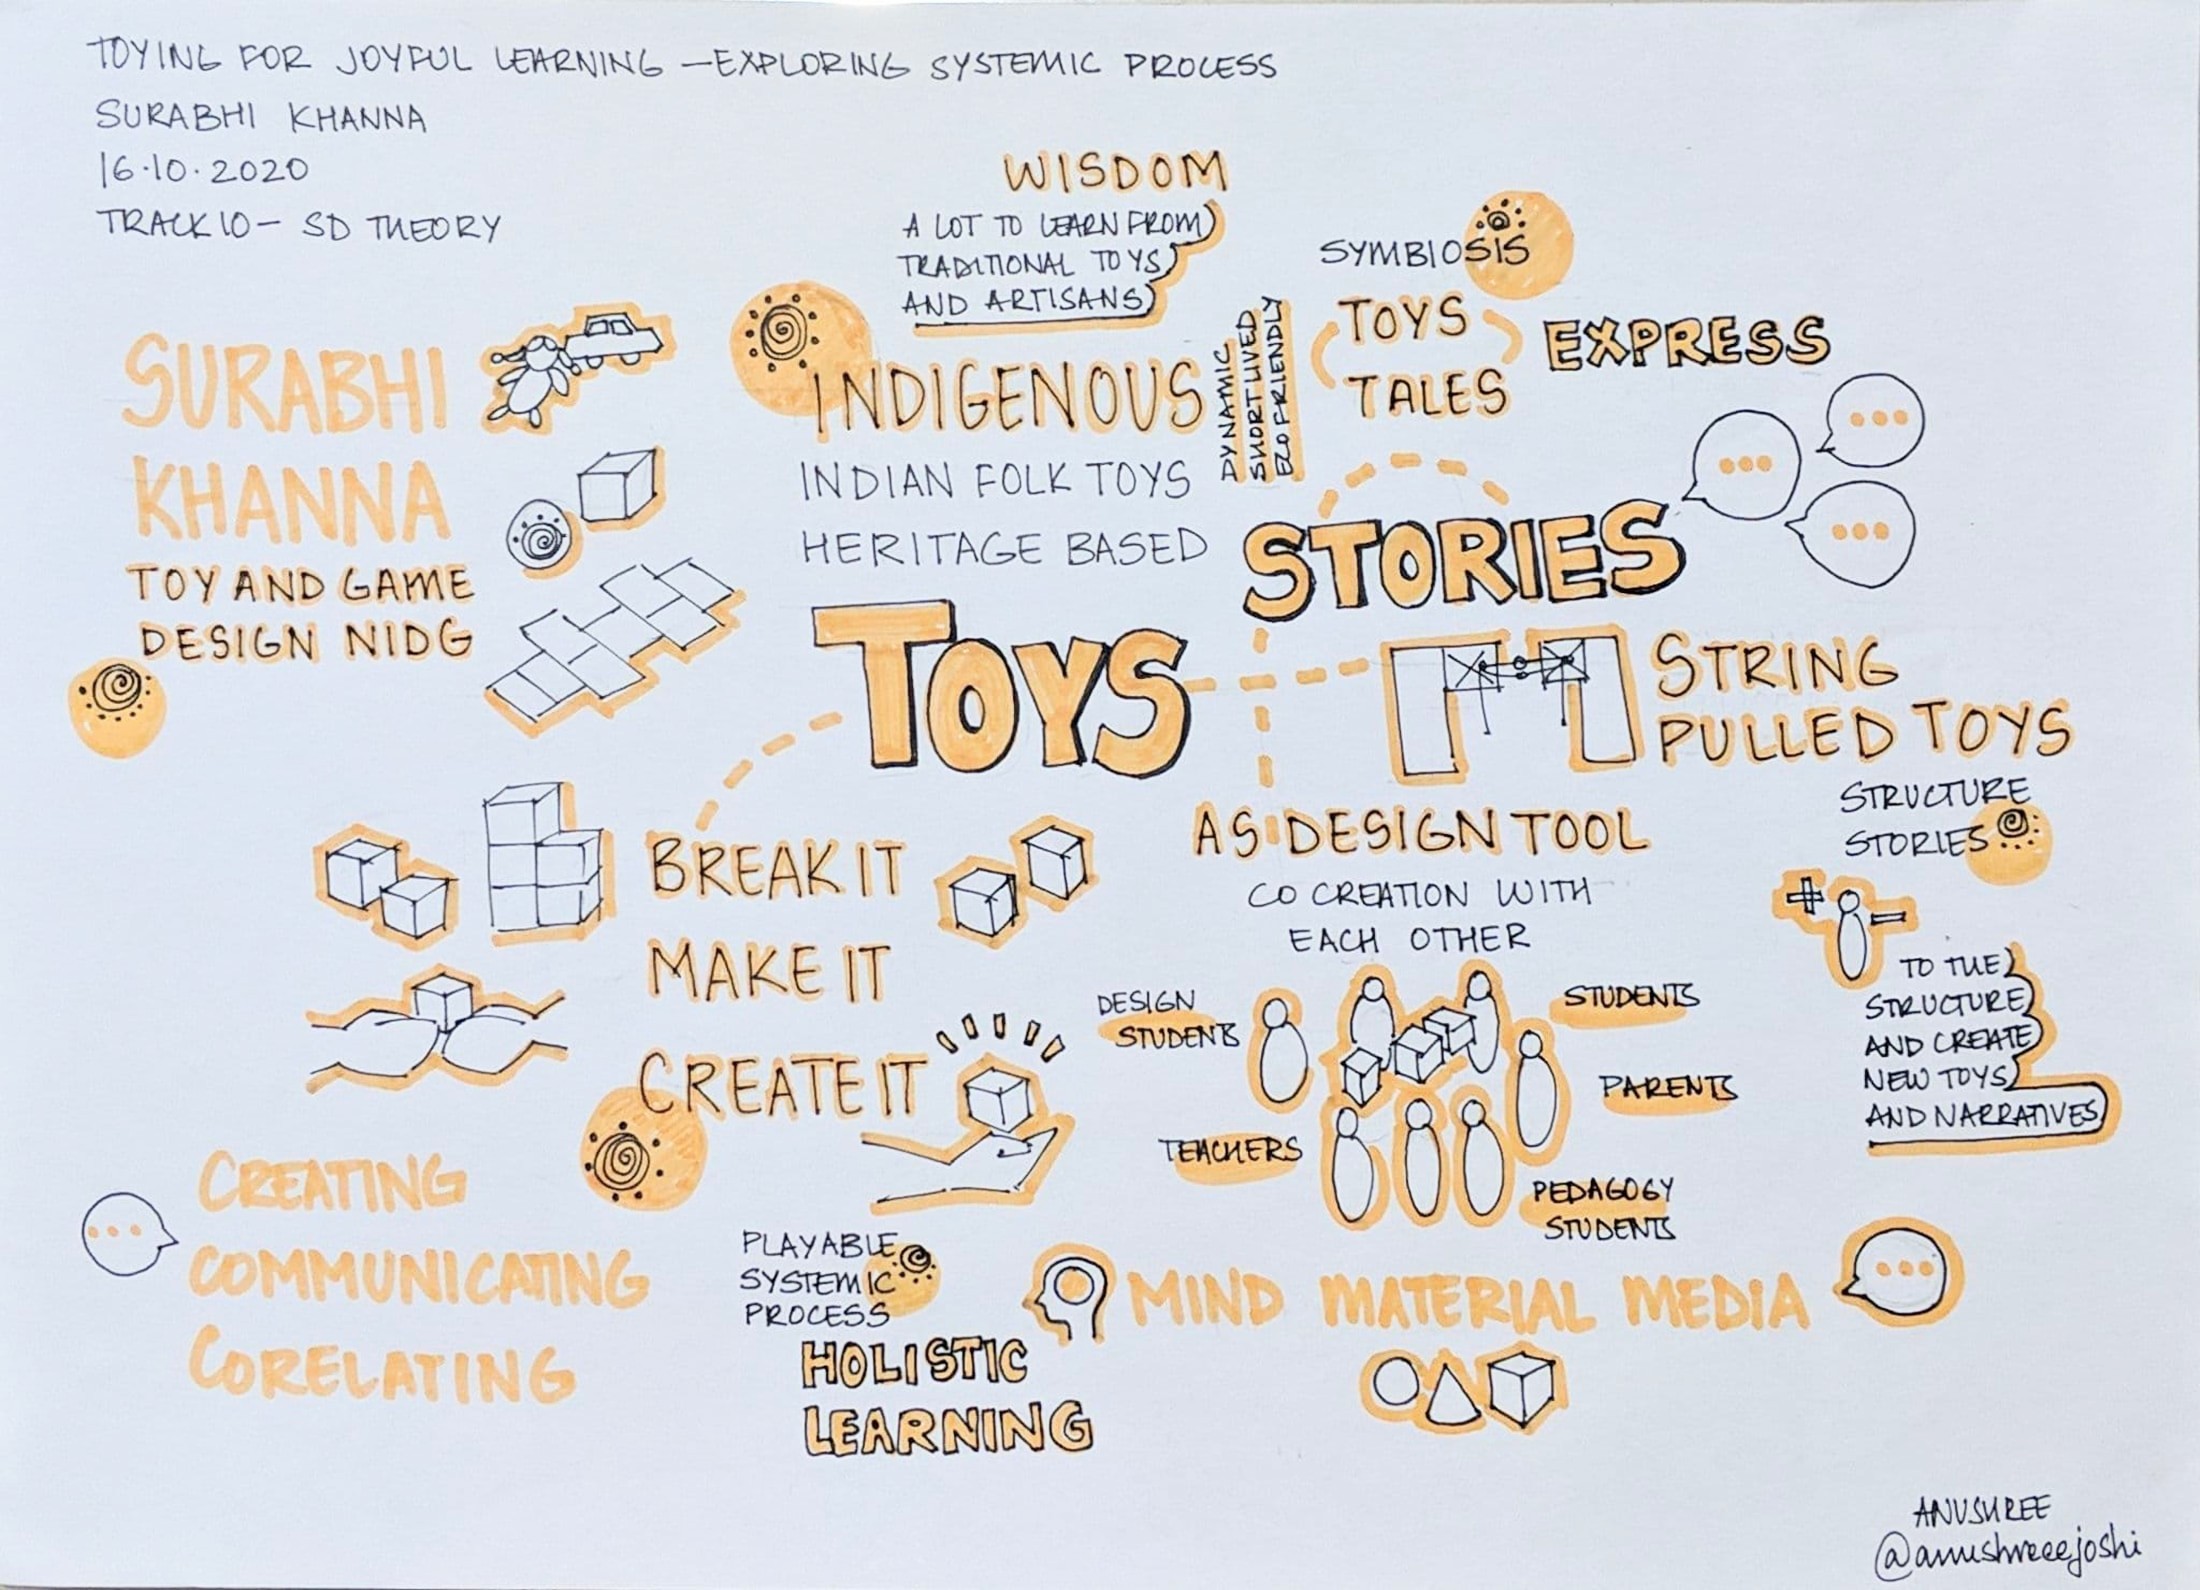 TOYING FOR JOYFUL LEARNING — EXPLORING SYSTEMIC PROCESS
SURABHI KHANNA
16.10.2020
TRACK 10 - SD THEORY
SURABHI
KHANNA
TOY AND GAME
DESIGN NIDG
WISDOM
A LOT TO LEARN FROM
TRADITIONAL TOYS
AND ARTISANS
INDIGENOUS
INDIAN FOLK TOYS
HERITAGE BASED
DYNAMIC
SHORT LIVED
ECO FRIENDLY
SYMBIOSIS
TOYS
TALES
EXPRESS
STORIES
TOYS
STRING
PULLED TOYS
STRUCTURE
STORIES
+ -
TO THE
STRUCTURE
AND CREATE
NEW TOYS
AND NARRATIVES
BREAK IT
MAKE IT
CREATE IT
AS DESIGN TOOL
CO CREATION WITH
EACH OTHER
DESIGN
STUDENTS
STUDENTS
PARENTS
TEACHERS
PEDAGOGY
STUDENTS
CREATING
COMMUNICATING
CORELATING
PLAYABLE
SYSTEMIC
PROCESS
HOLISTIC
LEARNING
MIND MATERIAL MEDIA
ANUSHREE
@anushreeejoshi